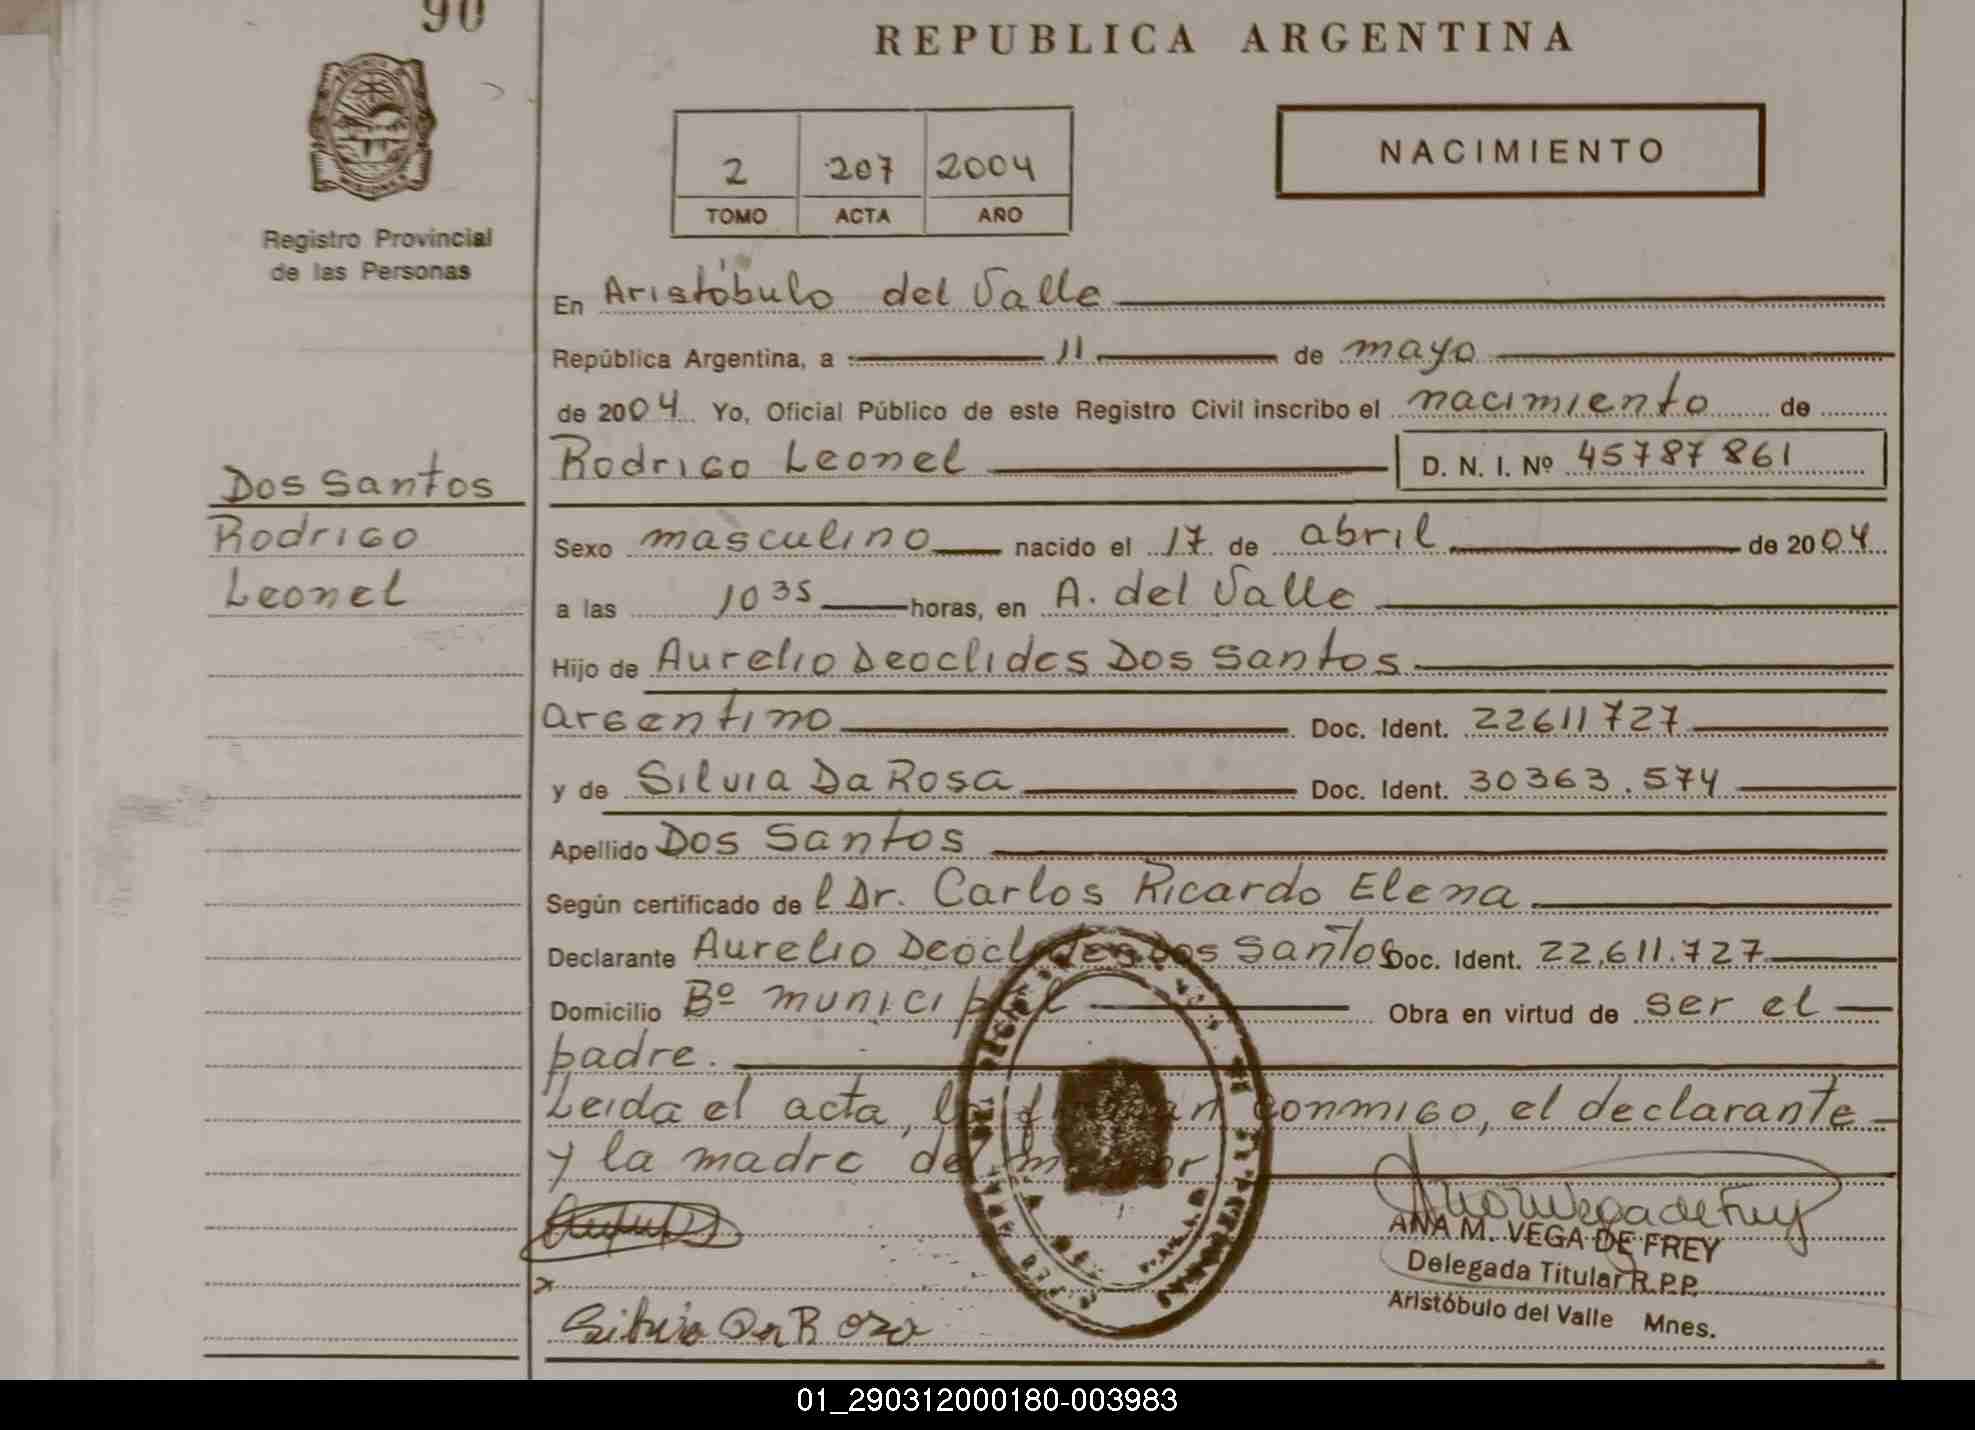 90
REPUBLICA ARGENTINA
NACIMIENTO
2 207 2004
TOMO ACTA AÑO
Registro Provincial
de las Personas
En Aristóbulo del Valle
República Argentina, a 11 de mayo
de 2004 Yo, Oficial Público de este Registro Civil inscribo el nacimiento de
Rodrigo Leonel D. N. I. Nº 45787861
Dos Santos
Rodrigo
Leonel
Sexo masculino nacido el 17 de abril de 2004
a las 10 35 horas, en A. del Valle
Hijo de Aurelio Deoclides Dos Santos
argentino Doc. Ident. 22611727
y de Silvia Da Rosa Doc. Ident. 30363.574
Apellido Dos Santos
Según certificado del Dr. Carlos Ricardo Elena
Declarante Aurelio Deoclides Dos Santos Doc. Ident. 22.611.727
Domicilio Bº municipal Obra en virtud de ser el
padre.
Leida el acta, la firman conmigo, el declarante
y la madre del menor
Ana M Vega de Frey
ANA M. VEGA DE FREY
Delegada Titular R.P.P.
Aristóbulo del Valle Mnes.
x
Silvia Da Rosa
01_290312000180-003983